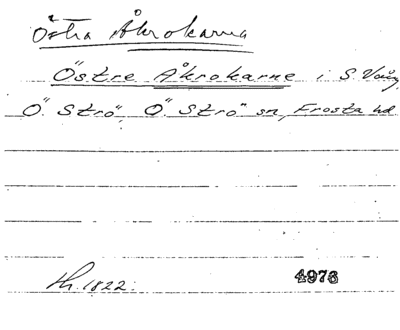 Östra Åkrokarna
Östre Åkrokarne i S. Vång
Ö. Strö, Ö. Strö sn, Frosta hd
Lh. 1822. 4976